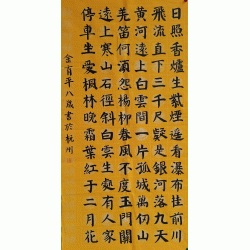 日照香爐生紫煙遙看瀑布挂前川
飛流直下三千尺疑是銀河落九天
黃河遠上白雲間一片孤城萬仞山
羌笛何須怨楊柳春風不度玉門關
遠上寒山石徑斜白雲生處有人家
停車坐愛楓林晚霜葉紅于二月花
金育年八歲書於杭州